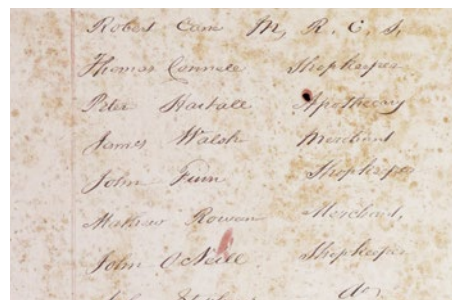 Robert Cane M, R. C. S,
Thomas Connell Shopkeeper
Peter Apothecary
James Walsh Merchant
John Shopkeeper
Mathew Rowan Merchant,
John O'Neill Shopkeeper
Do